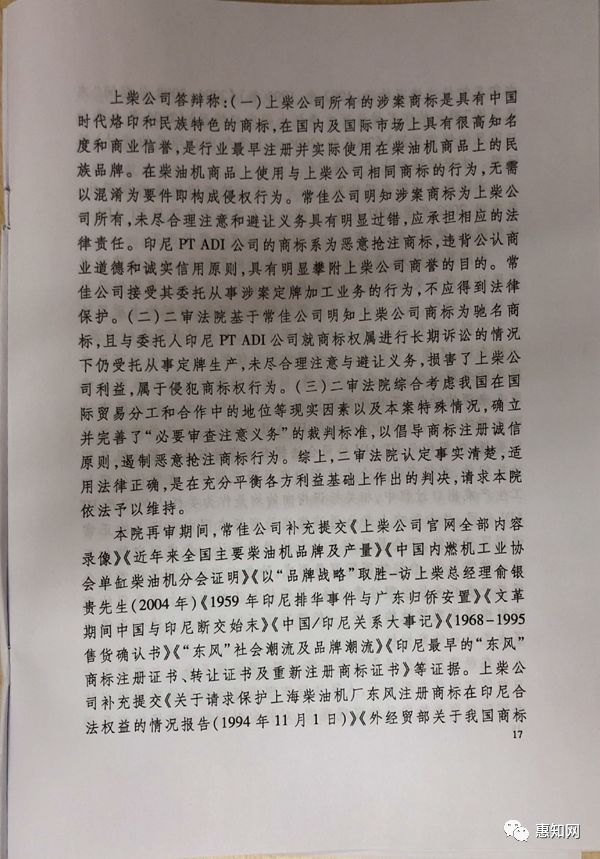 上柴公司答辩称:(一)上柴公司所有的涉案商标是具有中国
时代烙印和民族特色的商标,在国内及国际市场上具有很高知名
度和商业信誉,是行业最早注册并实际使用在柴油机商品上的民
族品牌。在柴油机商品上使用与上柴公司相同商标的行为,无需
以混淆为要件即构成侵权行为。常佳公司明知涉案商标为上柴公
司所有,未尽合理注意和避让义务具有明显过错,应承担相应的法
律责任。印尼 PT ADI 公司的商标系为恶意抢注商标,违背公认商
业道德和诚实信用原则,具有明显攀附上柴公司商誉的目的。常
佳公司接受其委托从事涉案定牌加工业务的行为,不应得到法律
保护。(二)二审法院基于常佳公司明知上柴公司商标为驰名商
标,且与委托人印尼 PT ADI 公司就商标权属进行长期诉讼的情况
下仍受托从事定牌生产,未尽合理注意与避让义务,损害了上柴公
司利益,属于侵犯商标权行为。(三)二审法院综合考虑我国在国
际贸易分工和合作中的地位等现实因素以及本案特殊情况,确立
并完善了“必要审查注意义务”的裁判标准,以倡导商标注册诚信
原则,遏制恶意抢注商标行为。综上,二审法院认定事实清楚,适
用法律正确,是在充分平衡各方利益基础上作出的判决,请求本院
依法予以维持。
本院再审期间,常佳公司补充提交《上柴公司官网全部内容
录像》《近年来全国主要柴油机品牌及产量》《中国内燃机工业协
会单缸柴油机分会证明》《以“品牌战略”取胜-访上柴总经理俞银
贵先生(2004 年)《1959 年印尼排华事件与广东归侨安置》《文革
期间中国与印尼断交始末》《中国/印尼关系大事记》《1968-1995
售货确认书》《“东风”社会潮流及品牌潮流》《印尼最早的“东风”
商标注册证书、转让证书及重新注册商标证书》等证据。上柴公
司补充提交《关于请求保护上海柴油机厂东风注册商标在印尼合
法权益的情况报告(1994 年 11 月 1 日)》《外经贸部关于我国商标
17
惠知网